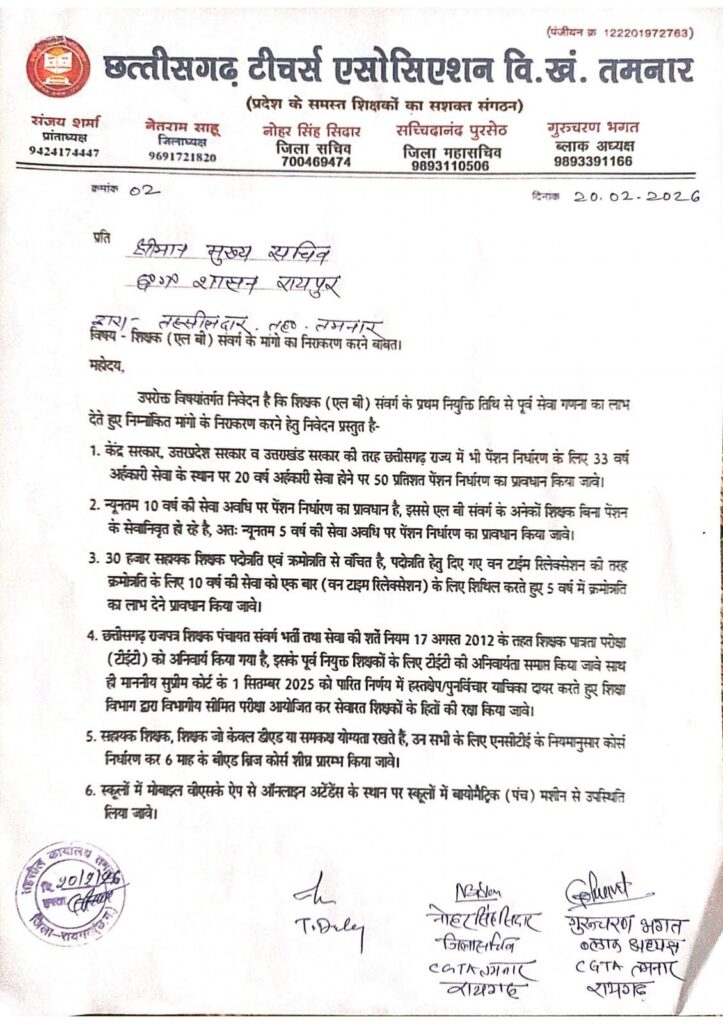 (पंजीयन क्र 122201972763)
छत्तीसगढ़ टीचर्स एसोसिएशन वि.खं. तमनार
(प्रदेश के समस्त शिक्षकों का सशक्त संगठन)
संजय शर्मा
प्रांताध्यक्ष
9424174447
नेतराम साहू
जिलाध्यक्ष
9691721820
नोहर सिंह सिदार
जिला सचिव
700469474
सच्चिदानंद पुरसेठ
जिला महासचिव
9893110506
गुरुचरण भगत
ब्लाक अध्यक्ष
9893391166
क्रमांक 02
दिनांक 20.02.2026
प्रति
श्रीमान मुख्य सचिव
छ०ग० शासन रायपुर
द्वारा- तहसीलदार. तह० तमनार
विषय - शिक्षक (एल बी) संवर्ग के मांगो का निराकरण करने बाबत।
महोदय,
उपरोक्त विषयांतर्गत निवेदन है कि शिक्षक (एल बी) संवर्ग के प्रथम नियुक्ति तिथि से पूर्व सेवा गणना का लाभ
देते हुए निम्नांकित मांगो के निराकरण करने हेतु निवेदन प्रस्तुत है-
1. केंद्र सरकार, उत्तरप्रदेश सरकार व उत्तराखंड सरकार की तरह छत्तीसगढ़ राज्य में भी पेंशन निर्धारण के लिए 33 वर्ष
अर्हकारी सेवा के स्थान पर 20 वर्ष अर्हकारी सेवा होने पर 50 प्रतिशत पेंशन निर्धारण का प्रावधान किया जावे।
2. न्यूनतम 10 वर्ष की सेवा अवधि पर पेंशन निर्धारण का प्रावधान है, इससे एल बी संवर्ग के अनेकों शिक्षक बिना पेंशन
के सेवानिवृत हो रहे है, अतः न्यूनतम 5 वर्ष की सेवा अवधि पर पेंशन निर्धारण का प्रावधान किया जावे।
3. 30 हजार सहायक शिक्षक पदोन्नति एवं क्रमोन्नति से वंचित है, पदोन्नति हेतु दिए गए वन टाईम रिलेक्सेशन की तरह
क्रमोन्नति के लिए 10 वर्ष की सेवा को एक बार (वन टाइम रिलेक्सेशन) के लिए शिथिल करते हुए 5 वर्ष में क्रमोन्नति
का लाभ देने प्रावधान किया जावे।
4. छत्तीसगढ़ राजपत्र शिक्षक पंचायत संवर्ग भर्ती तथा सेवा की शर्ते नियम 17 अगस्त 2012 के तहत शिक्षक पात्रता परीक्षा
(टीईटी) को अनिवार्य किया गया है, इसके पूर्व नियुक्त शिक्षकों के लिए टीईटी की अनिवार्यता समाप्त किया जावे साथ
ही माननीय सुप्रीम कोर्ट के 1 सितम्बर 2025 को पारित निर्णय में हस्तक्षेप/पुनर्विचार याचिका दायर करते हुए शिक्षा
विभाग द्वारा विभागीय सीमित परीक्षा आयोजित कर सेवारत शिक्षकों के हितों की रक्षा किया जावे।
5. सहायक शिक्षक, शिक्षक जो केवल डीएड या समकक्ष योग्यता रखते हैं, उन सभी के लिए एनसीटीई के नियमानुसार कोर्स
निर्धारण कर 6 माह के बीएड ब्रिज कोर्स शीघ्र प्रारम्भ किया जावे।
6. स्कूलों में मोबाइल वीएसके ऐप से ऑनलाइन अटेंडेंस के स्थान पर स्कूलों में बायोमैट्रिक (पंच) मशीन से उपस्थिति
लिया जावे।
तहसील कार्यालय
दि. 20/2/26
जिला-रायगढ़ (छ.ग.)
नोहरसिंह सिदार
जिलासचिव
CGTA तमनार
रायगढ़
गुरुचरण भगत
ब्लाक अध्यक्ष
CGTA तमनार
रायगढ़